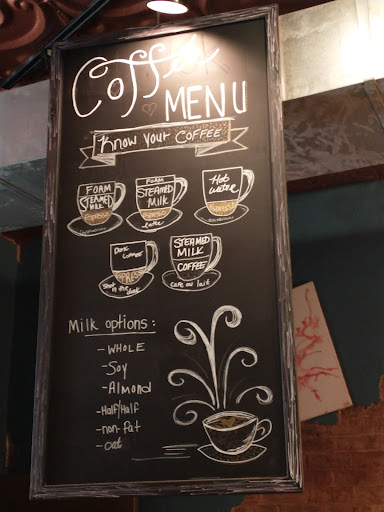 Coffee
MENU
Know your COFFEE
FOAM
STEAMED
MILK
ESPRESSO
FOAM
STEAMED
MILK
ESPRESSO
Latte
Hot
water
ESPRESSO
Dark
Shot
in the
dark
STEAMED
MILK
COFFEE
cafe au lait
Milk options:
- WHOLE
- Soy
- Almond
- Half/Half
- non-fat
- oat